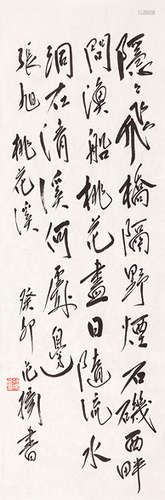 隱々飛橋隔野煙石磯西畔
問漁船桃花盡日隨流水
洞在清溪何處邊
張旭桃花溪 癸卯 范衡書